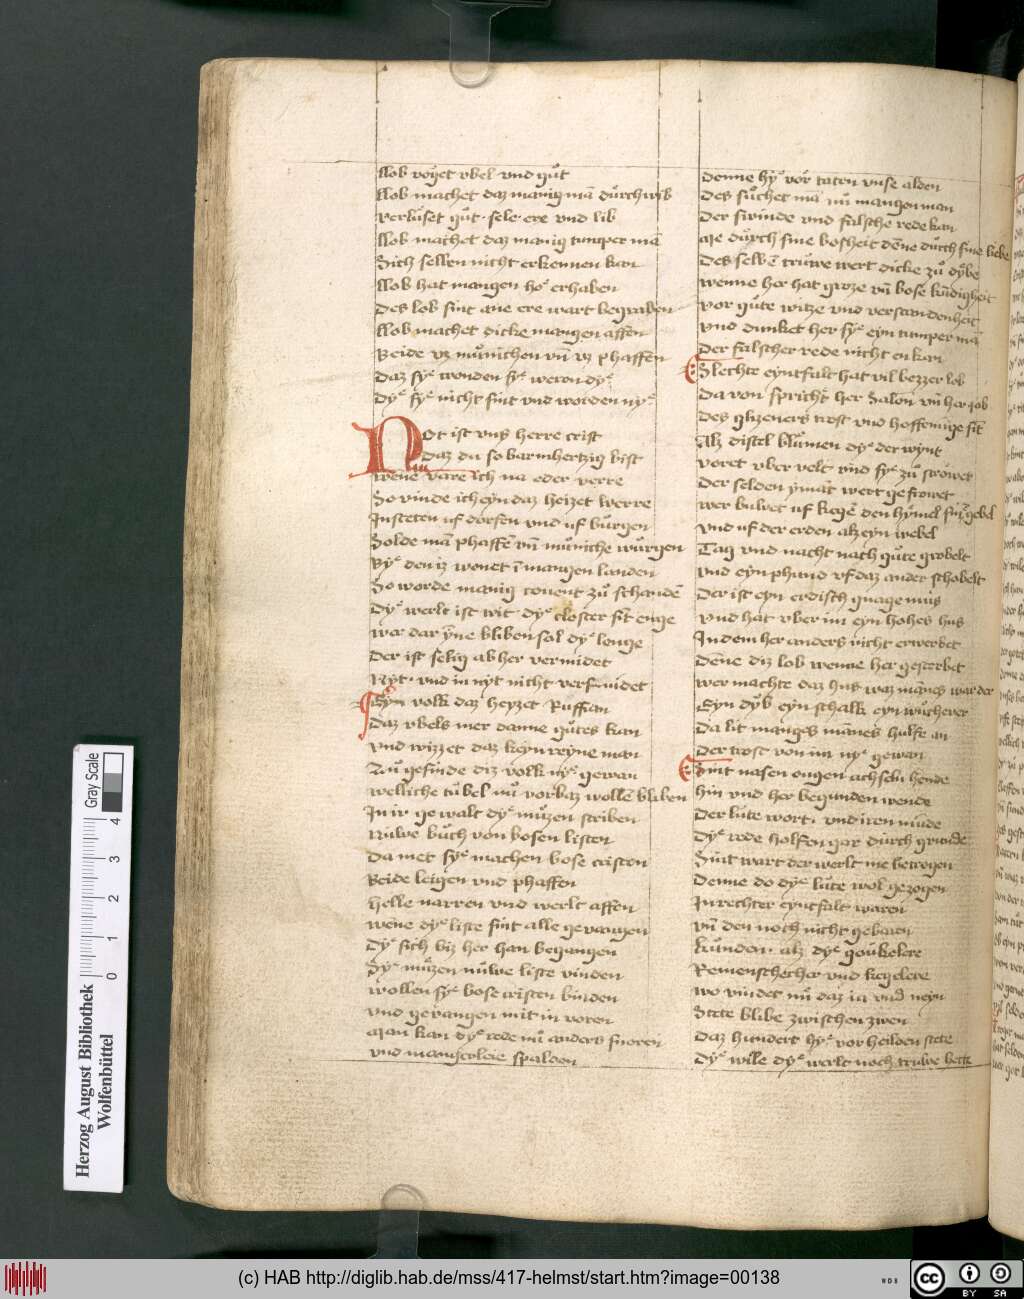 Lob voget vbel vnd gut
Lob machet daz manig mā durch wib
verluset gut sele ere vnd lib
Lob machet daz manig tumper mā
Sich selben nicht erkennen kan
Lob hat mangen ho erhaben
Des lob sint ane ere wart begraben
Lob machet dicke mangen affen
Beide vz munichen vn̄ vz phaffen
Daz sy wonden sy weren dy
Dy sy nicht sint vnd worden ny
Not ist vns herre crist
Daz du so barmhertzig bist
wēne vare ich na eder verre
So vinde ich eyn daz heizet werre
In steten uf dorfen vnd uf burgen
Solde mā phaffē vn̄ muniche wurgen
By den iz wonet ī mangen landen
So worde manig couent zu schandē
Dy werlt ist wit dy closter sīt enge
wer dar ȳne bliben sol dy lenge
Der ist selig ab her vermidet
Nyt vnd in nyt nicht versnidet
Eyn volk daz heyzet Ruffian
Daz vbels mer danne gutes kan
vnd wizzet daz keyn reyne man
Zu gesinde diz volk ny gewan
welliche tubel nu vorbaz wollē bliben
In ir gewalt dy muzen scriben
Nuwe buch von bosen listen
Da met sy machen bose cristen
Beide leigen vnd phaffen
Helle narren vnd werlt affen
wēne dy liste sint alle gevangen
Dy sich biz her han begangen
Dy muzen nuwe liste vinden
wollen sy bose cristen binden
vnd gevangen mit in voren
Man kan dy rede nu anders snoren
vnd mangerleie spalden
Denne hy vor taten vnse alden
Des suchet mā nu mangen man
Der swinde vnd falsche rede kan
Me durch sine bosheit dēne durch sine liebe
Des selbē truwe wert dicke zu dybe
wenne her hat groze vn̄ bose kūdigheit
vor gute witze vnd verstandenheit
vnd dunket her sy eyn tumper mā
Der falscher rede nicht en kan
Slechte eyntfalt hat vil bezzer lob
Da von spricht her Salon vn̄ her Job
Des glizeners trost vnd hoffenūge sīt
Alz distel blumen dy der wynt
voret vber velt vnd sy zu strowet
Der selden ymāt wert gefrowet
wer buwet uf kegē den hymel sinē gebel
vnd uf der erden alz eyn webel
Tag vnd nacht nach gute grobelt
vnd eyn phund vf daz ander schobelt
Der ist eyn erdisch
vnd hat vber im eyn hohes hus
In dem her anders nicht erwerbet
Dēne diz lob wenne her gesterbet
wer machte daz hus waz mānes war der
Eyn dyb eyn schalk eyn wucherer
Da lit manges mānes hulfe an
Der trost von im ny gewan
Sint nasen ougen achseln hende
hin vnd her begunden wende
Der lute wort vnd iren munde
Dy rede holfen gar durch grunde
Sint wart der werlt me betrogen
Denne do dy lute wol gezogen
In rechter eyntfalt waren
vn̄ den noch nicht gebaren
kunden alz dy goukelere
Remensthecher vnd kegelere
wo vindet mā daz ia vnd neyn
Stete blibe zwischen zwen
Daz hundert hy vor heilden stete
Dy wile dy werlt noch truwe hette
Gray Scale
0 1 2 3 4
Herzog August Bibliothek
Wolfenbüttel
(c) HAB http://diglib.hab.de/mss/417-helmst/start.htm?image=00138
WDB
cc BY SA